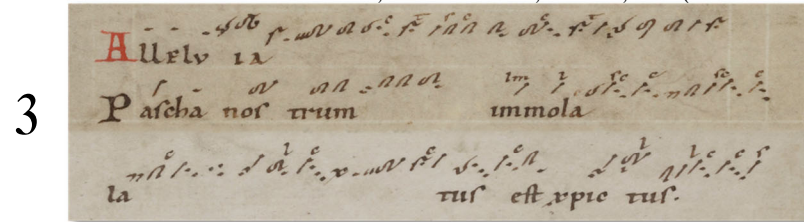 Allelv ia
3 Pascha nos trum immola
la tus est xpic tus.